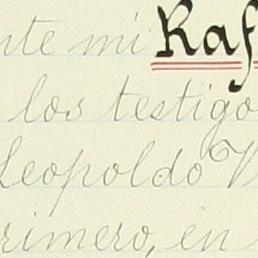 nte mi Raf
los testigo
Leopoldo V
rimero, en